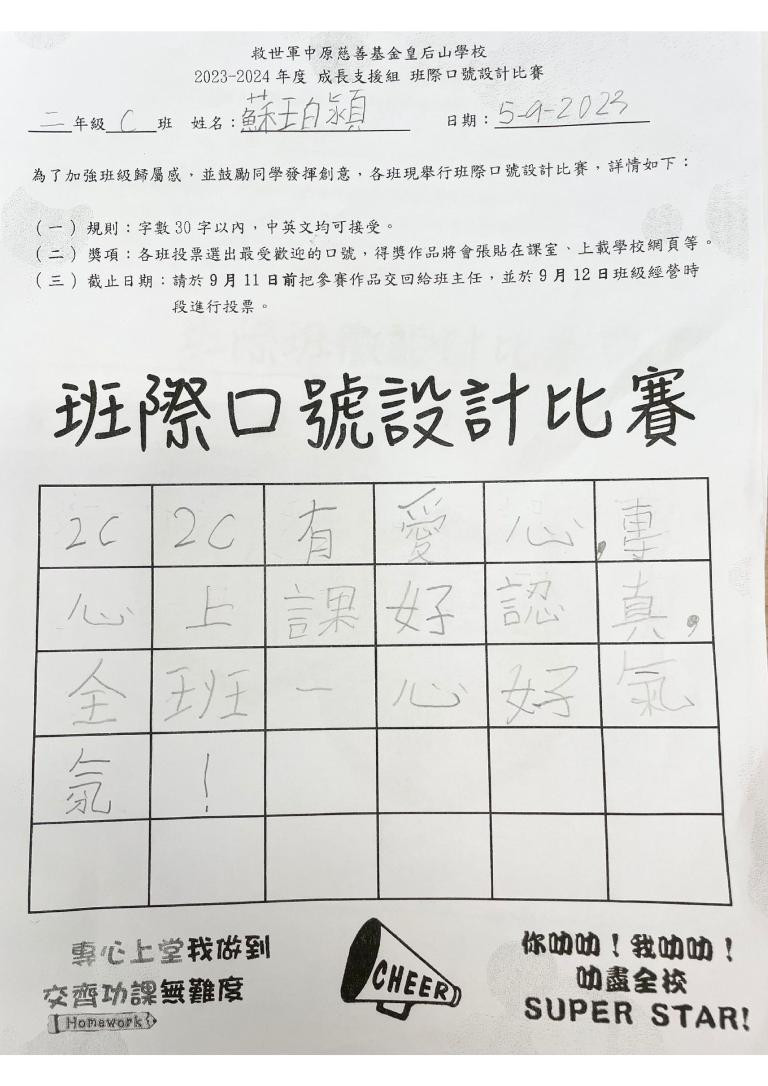 救世軍中原慈善基金皇后山學校
2023-2024 年度 成長支援組 班際口號設計比賽
二年級 C 班 姓名：蘇珀潁 日期：5-9-2023
為了加強班級歸屬感，並鼓勵同學發揮創意，各班現舉行班際口號設計比賽，詳情如下：
（一）規則：字數 30 字以內，中英文均可接受。
（二）獎項：各班投票選出最受歡迎的口號，得獎作品將會張貼在課室、上載學校網頁等。
（三）截止日期：請於 9 月 11 日前把參賽作品交回給班主任，並於 9 月 12 日班級經營時
段進行投票。
班際口號設計比賽
2C 2C 有愛心，專
心上課好認真，
全班一心好氣
氛！
專心上堂我做到
交齊功課無難度
Homework
CHEER
你叻叻！我叻叻！
叻盡全校
SUPER STAR!